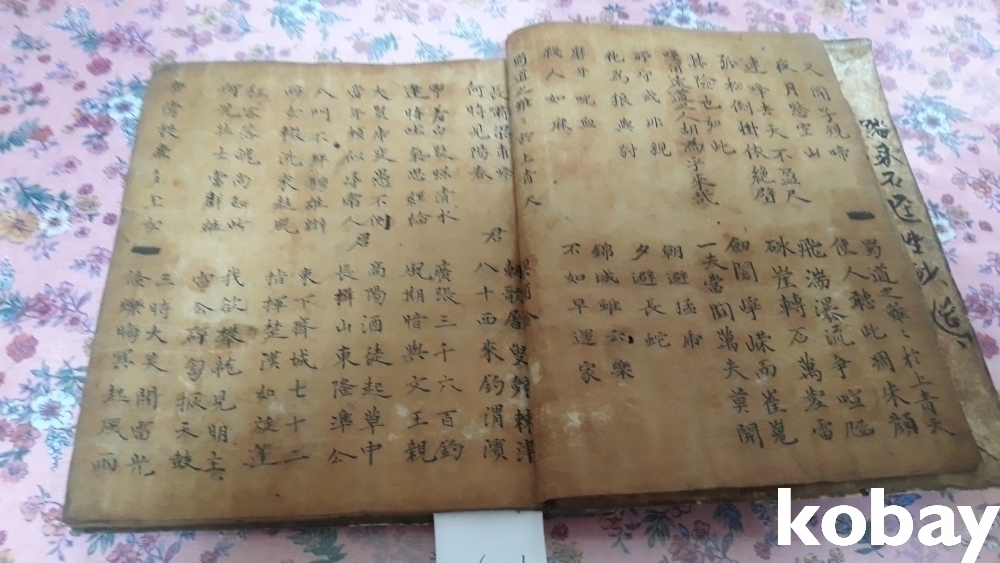 又聞子規啼
蜀道之難〻於上青天
夜月愁空山
使人聽此凋朱顏
連峰去天不盈尺
飛湍瀑流爭喧豗
孤松倒掛依絕壁
砅崖轉石萬壑雷
其險也如此
劒閣崢嶸而崔嵬
嗟爾遠道人胡爲乎來哉
一夫當關萬夫莫開
所守或非親
朝避猛虎
化爲狼與豺
夕避長蛇
磨牙吮血
錦城雖云樂
殺人如麻
不如早還家
蜀道之難〻於上青天
長嘯梁甫吟
朝歌屠叟辭棘津
何時見陽春 君
八十西來釣渭濱
寧羞白髮照清水
廣張三千六百釣
逢時吐氣思經綸
風期暗與文王親
大賢虎變愚不測
高陽酒徒起草中
當年頗似尋常人 君
長揖山東隆準公
入門不拜騁雄辯
東下齊城七十二
兩女輟洗來趨風
指揮楚漢如旋蓬
狂客落魄尚如此
我欲攀龍見明主
何況壯士當群雄
雷公砰訇振天鼓
帝旁投壺多玉女
三時大笑開電光
倏爍晦冥起風雨
kobay